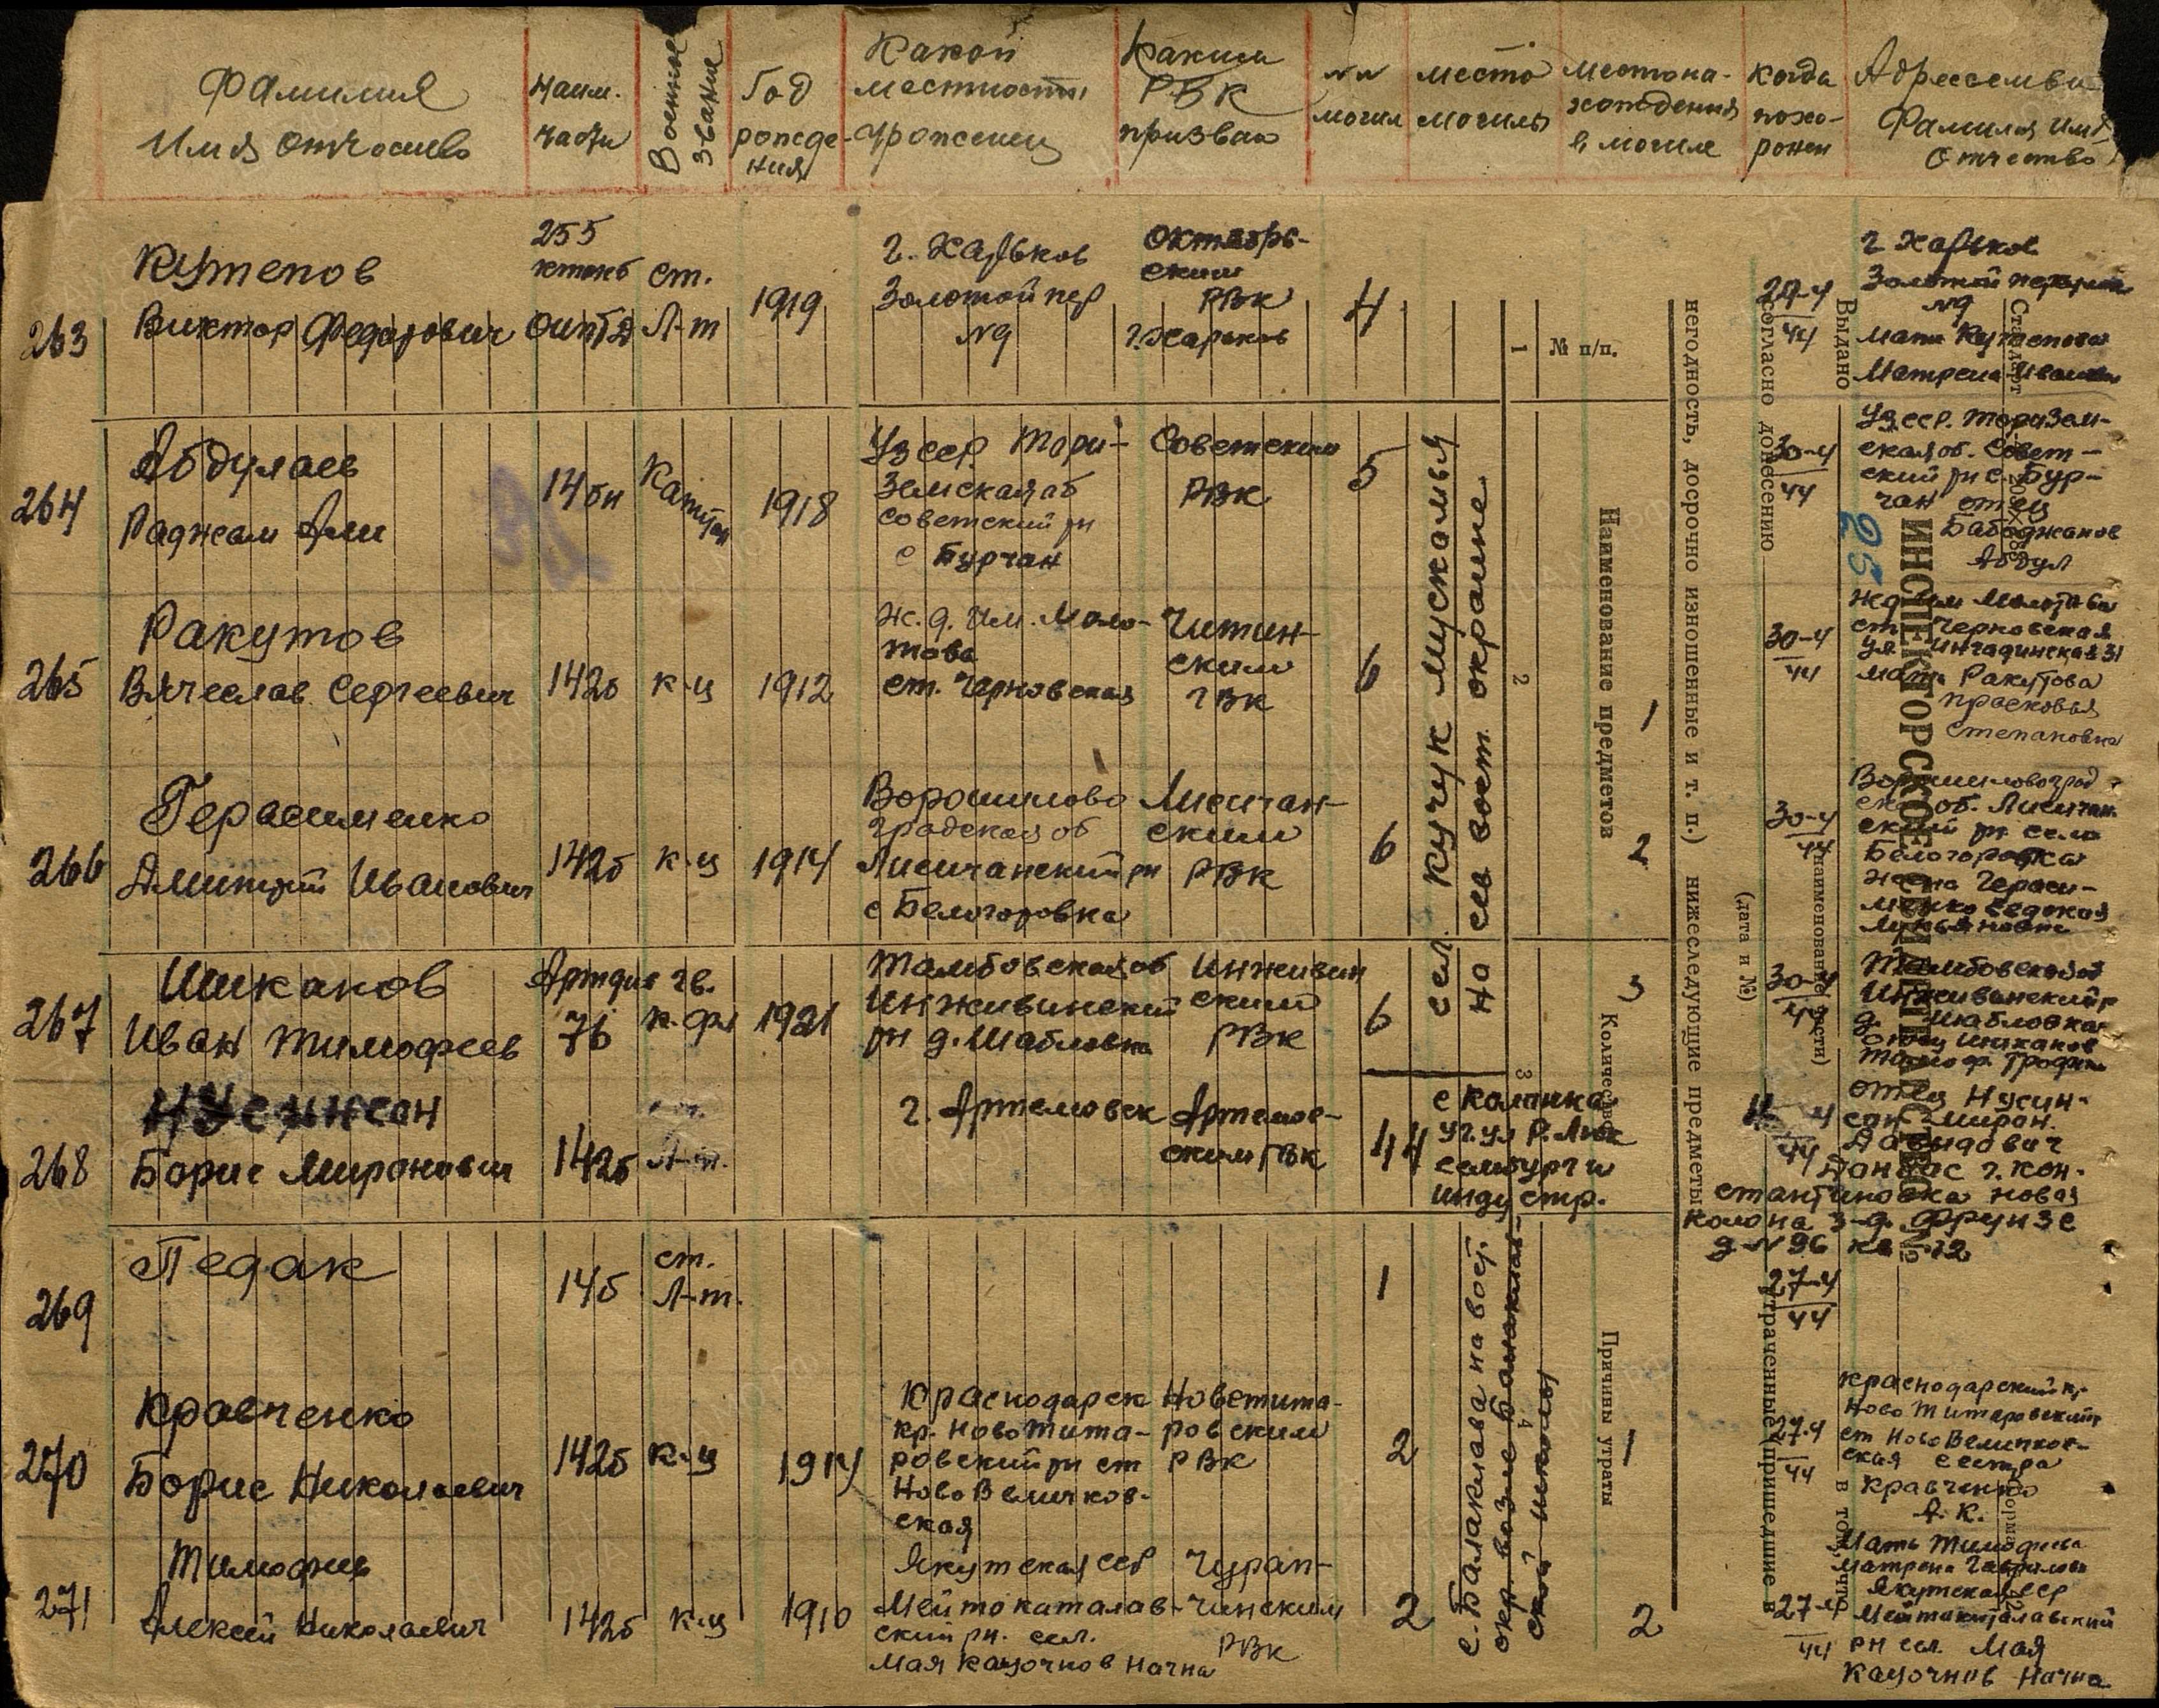 Фамилия
Имя Отчество
Наим.
части
Военные
звание
Год
рожде-
ния
Какой
местности
уроженец
Каким
РВК
призван
№№
могил
место
могилы
местона-
хождения
в могиле
когда
похо-
ронен
Адрес семьи
Фамилия Имя
Отчество
263
Кутепов
Виктор Федорович
255
ОИПТД
ст.
Л-т
1919
г. Харьков
Золотой пер
№9
Октябрь-
ским
РВК
г. Харьков
4
27-4
44
г Харьков
Золотой
№9
мать Кутепова
Матрена
264
Абдулаев
Раджам Али
14бп
Капитан
1918
Уз сср. Тори-
Земская об
Советский рн
с Бурчан
Советским
РВК
5
30-4
44
Уз ССР. Торизем-
ская об. Совет-
ский рн с. Бур-
чан отец
Бабоджанов
Абдул
265
Ракутов
Вячеслав Сергеевич
142б
к-ц
1912
ж. д. им. Моло-
това
ст. Черновская
Читин-
ским
ГВК
6
30-4
44
жд им Молотова
ст. Черновская
ул 31
мать Ракутова
прасковья
Степановна
266
Герасименко
Дмитрий Иванович
142б
к-ц
1914
Ворошилово
градская об
Лисичанский рн
с Белогоровка
Лисичан-
ским
РВК
6
30-4
44
Ворошиловоград
ская об. Лисичан
ский рн село
Белогоровка
жена Гераси-
менко
267
Шиканов
Иван Тимофеев
Артдив
76
гв.
к-
1921
Тамбовская об
Инживинский
рн д. Шабловка
Инживин
ским
РВК
6
30-4
44
Тамбовской об
Инживинский р
д. Шабловка
отец Шиканов
268
Нусинсон
Борис Миронович
142б
Л-т.
г. Артемовск
Артемов-
ским ГВК
44
с Калинка
уг. ул Р. Люк
сембург и
индустр.
4
44
отец Нусин-
сон Мирон
Давидович
Донбас г. Кон-
стантиновка новая
колона з-д. Фрунзе
д №96 кв 12
269
Педак
14б
ст.
Л-т.
1
27-4
44
270
Кравченко
Борис Николаевич
142б
к-ц
1914
Краснодарск
кр. Ново Тита-
ровский рн ст
Ново Величков-
ская
Новотита-
ровским
РВК
2
27-4
44
Краснодарский кр.
Ново Титаровский
ст Ново Величков-
ская сестра
Кравченко
А. К.
271
Тимофиев
Алексей Николаевич
142б
к-ц
1910
Якутская ССР
Мейтокаталав-
ский рн. сел.
Мая Начна
Чурап-
чинским
РВК
2
27-4
44
Мать Тимофиева
Матрена
Якутская ССР
рн сел. Мая
Начна
сел. Кучук Мускомья
на сев вост. окраине
с. Балаклава на вост.
окр. возле Балаклав-
ской школы
25
1
№ п/п.
2
Наименование предметов
3
Количество
4
Причины утраты
1
2
3
1
2
негодность, досрочно изношенные и т. п.) нижеследующие предметы
утраченные (пришедшие в
Согласно донесению
(дата и №)
(наименование части)
Выдано
в том, что
ИНСПЕКТОРСКОЕ